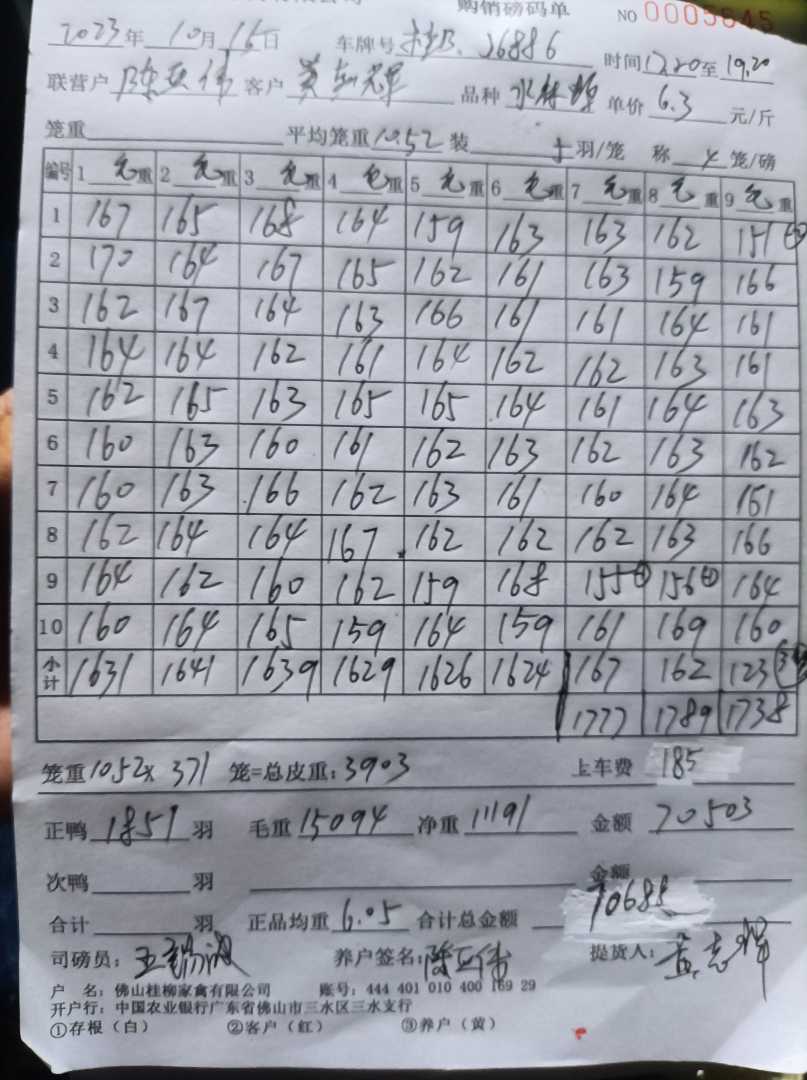 购销磅码单 NO 0005645
2023年10月16日 车牌号 J6886 时间17.20至19.20
联营户 陈亚伟 客户 黄 品种 水 单价 6.3 元/斤
笼重 平均笼重10.52 装 5羽/笼 称 4 笼/磅
编号 1 毛重 2 毛重 3 毛重 4 毛重 5 毛重 6 毛重 7 毛重 8 毛重 9 毛重
1 167 165 168 164 159 163 163 162 151
2 170 164 167 165 162 161 163 159 166
3 162 167 164 163 166 161 161 164 161
4 164 164 162 161 164 162 162 163 161
5 162 165 163 165 165 164 161 164 163
6 160 163 160 161 162 163 162 163 162
7 160 163 166 162 163 161 160 164 161
8 162 164 164 167 162 162 162 163 166
9 164 162 160 162 159 168 155 156 164
10 160 164 165 159 164 159 161 169 160
小计 1631 1641 1639 1629 1626 1624 167 162 123
1777 1789 1738
笼重10.52x 371 笼=总皮重：3903 上车费 185
正鸭 1851 羽 毛重 15094 净重 11191 金额 70503
次鸭 羽 金额
合计 羽 正品均重 6.05 合计总金额 70688
司磅员： 养户签名：陈亚伟 提货人：黄志辉
户 名：佛山桂柳家禽有限公司 账号：444 401 010 400 169 29
开户行：中国农业银行广东省佛山市三水区三水支行
①存根（白） ②客户（红） ③养户（黄）